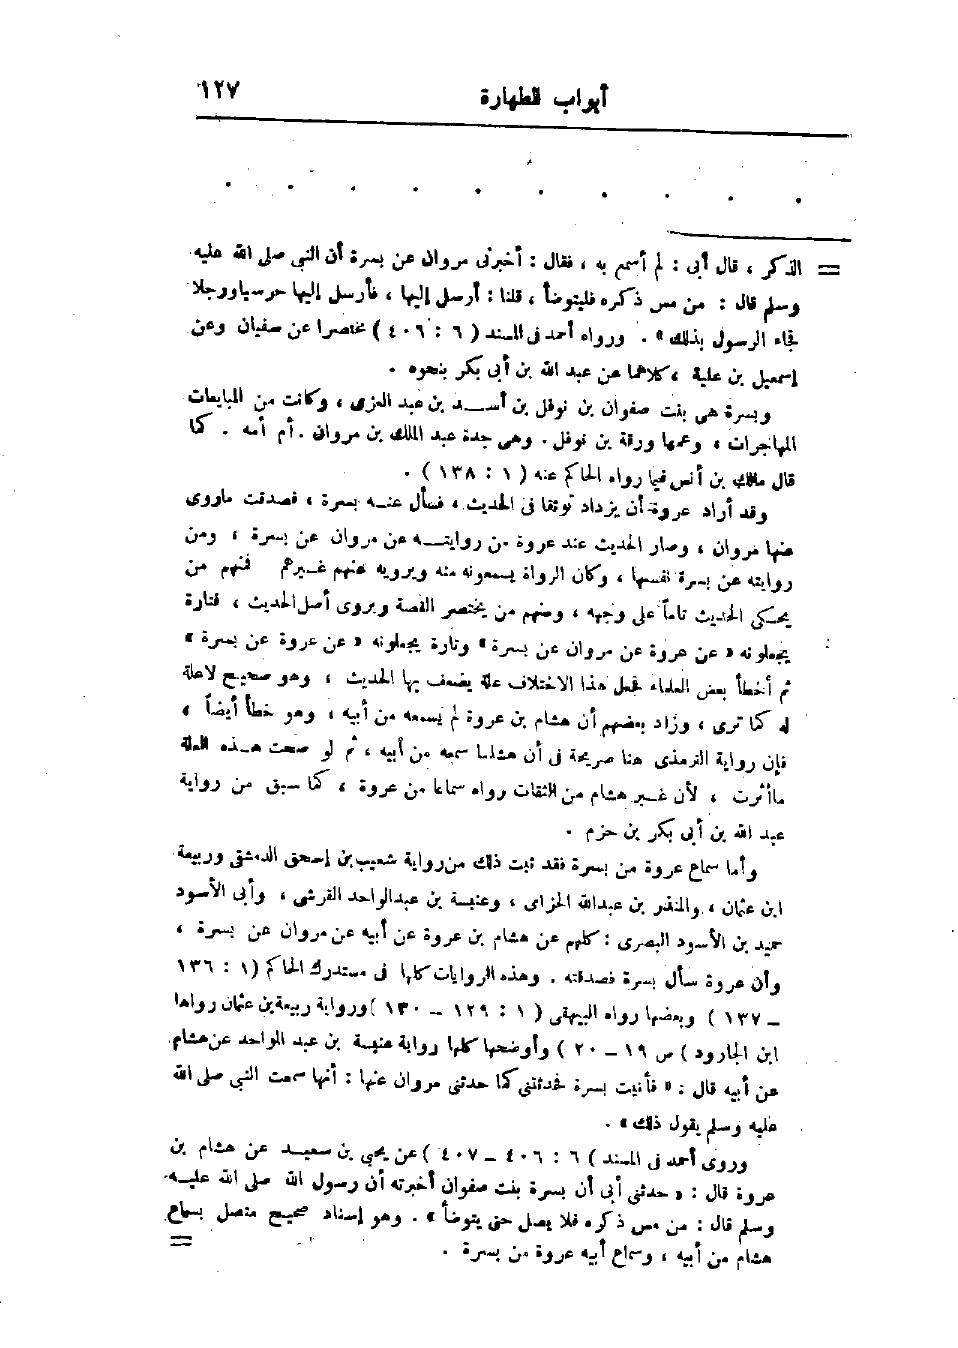 أبواب الطهارة ١٢٧
. . . . . . . . . .
= الذكر ، قال أبى : لم أسمع به ، فقال : أخبرنى مروان عن بسرة أن النبى صلى الله عليه
وسلم قال : من مس ذكره فليتوضأ ، قلنا : أرسل إليها ، فأرسل إليها حرسيا ورجلا
فجاء الرسول بذلك » . ورواه أحمد فى المسند ( ٦ : ٤٠٦ ) مختصرا عن سفيان وعن
إسمعيل بن علية ، كلاهما عن عبد الله بن أبى بكر بنحوه .
وبسرة هى بنت صفوان بن نوفل بن أسد بن عبد العزى ، وكانت من المبايعات
المهاجرات ، وعمها ورقة بن نوفل . وهى جدة عبد الملك بن مروان . أم أمه . كما
قال مالك بن أنس فيما رواه الحاكم عنه ( ١ : ١٣٨ ) .
وقد أراد عروة أن يزداد توثقا فى الحديث ، فسأل عنه بسرة ، فصدقت ماروى
عنها مروان ، وصار الحديث عند عروة من روايته عن مروان عن بسرة ، ومن
روايته عن بسرة نفسها ، وكان الرواة يسمعونه منه ويرويه عنهم غيرهم فمنهم من
يحكى الحديث تاماً على وجهه ، ومنهم من يختصر القصة ويروى أصل الحديث ، فتارة
يجعلونه « عن عروة عن مروان عن بسرة » وتارة يجعلونه « عن عروة عن بسرة »
ثم أخطأ بعض العلماء فجعل هذا الاختلاف علة يضعف بها الحديث ، وهو صحيح لاعلة
له كما ترى ، وزاد بعضهم أن هشام بن عروة لم يسمعه من أبيه ، وهو خطأ أيضاً ،
فإن رواية الترمذى هنا صريحة فى أن هشاما سمعه من أبيه ، ثم لو صحت هذه العلة
ماأثرت ، لأن غير هشام من الثقات رواه سماعا من عروة ، كما سبق من رواية
عبد الله بن أبى بكر بن حزم .
وأما سماع عروة من بسرة فقد ثبت ذلك من رواية شعيب بن إسحق الدمشقى وربيعة
ابن عثمان ، والمنذر بن عبدالله الحزامى ، وعنبسة بن عبدالواحد القرشى ، وأبى الأسود
حميد بن الأسود البصرى : كلهم عن هشام بن عروة عن أبيه عن مروان عن بسرة ،
وأن عروة سأل بسرة فصدقته . وهذه الروايات كلها فى مستدرك الحاكم (١ : ١٣٦
– ١٣٧ ) وبعضها رواه البيهقى ( ١ : ١٢٩ – ١٣٠ )ورواية ربيعة بن عثمان رواها
ابن الجارود ) ص ١٩ – ٢٠ ) وأوضحها كلها رواية عنبسة بن عبد الواحد عن هشام
عن أبيه قال : « فأتيت بسرة فحدثتنى كما حدثنى مروان عنها : أنها سمعت النبى صلى الله
عليه وسلم يقول ذلك » .
وروى أحمد فى المسند ) ٦ : ٤٠٦ – ٤٠٧ ) عن يحيى بن سعيد عن هشام بن
عروة قال : « حدثنى أبى أن بسرة بنت صفوان أخبرته أن رسول الله صلى الله عليه
وسلم قال : من مس ذكره فلا يصل حتى يتوضأ » . وهو إسناد صحيح متصل بسماع
هشام من أبيه ، وسماع أبيه عروة من بسرة . =